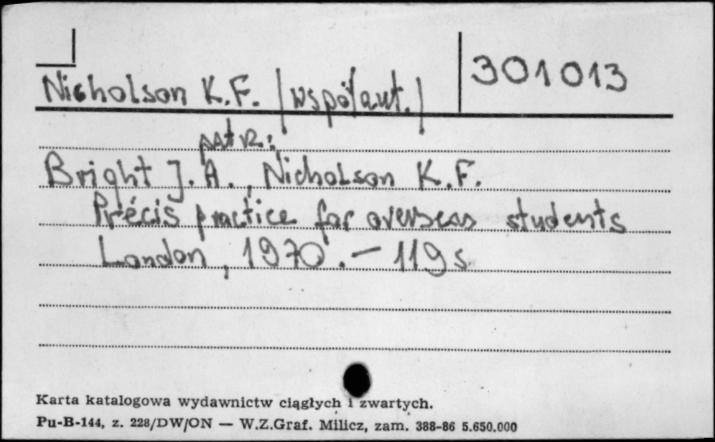 Nicholson K.F. /współaut./
301013
patrz:
Bright J. A., Nicholson K.F.
Précis practice for overseas students
London, 1970. — 119 s
Karta katalogowa wydawnictw ciągłych i zwartych.
Pu-B-144, z. 228/DW/ON — W.Z.Graf. Milicz, zam. 388-86 5.650.000